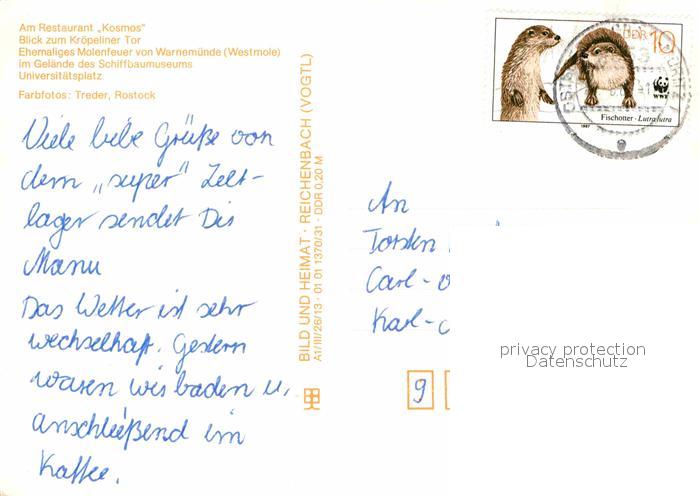 Am Restaurant „Kosmos"
Blick zum Kröpeliner Tor
Ehemaliges Molenfeuer von Warnemünde (Westmole)
im Gelände des Schiffbaumuseums
Universitätsplatz
Farbfotos: Treder, Rostock
Viele liebe Grüße von
dem „super" Zelt-
lager sendet Dir
Manu
Das Wetter ist sehr
wechselhaft. Gestern
waren wir baden u,
anschließend im
Kaffee.
BILD UND HEIMAT · REICHENBACH (VOGTL)
A1/III/26/13 · 01 01 1370/31 · DDR 0,20 M
DDR 10
WWF
Fischotter · Lutra lutra
1987
An
Torsten
Carl-
Karl-
9
privacy protection
Datenschutz